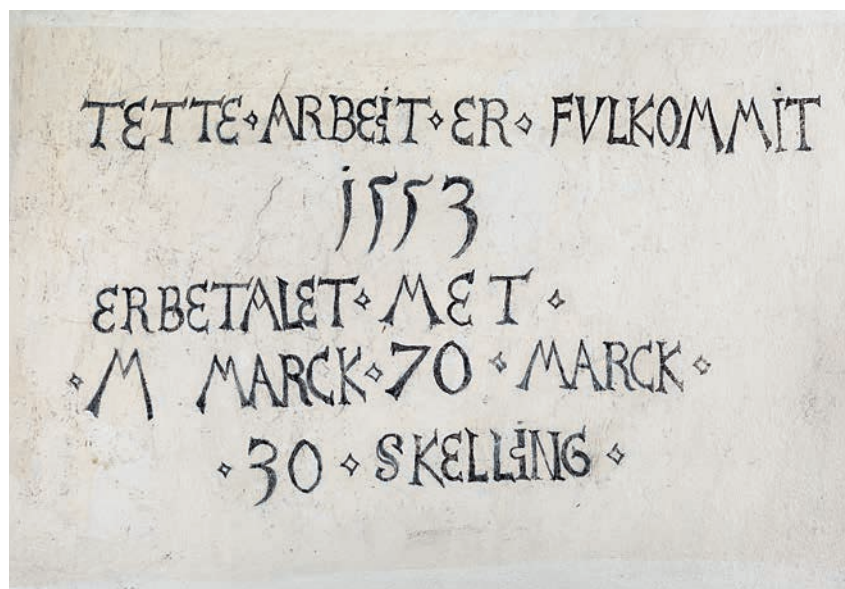 TETTE⋄ARBEIT⋄ER⋄FVLKOMMIT
1553
ERBETALET⋄MET⋄
⋄M MARCK⋄70⋄MARCK⋄
⋄30⋄SKELLING⋄